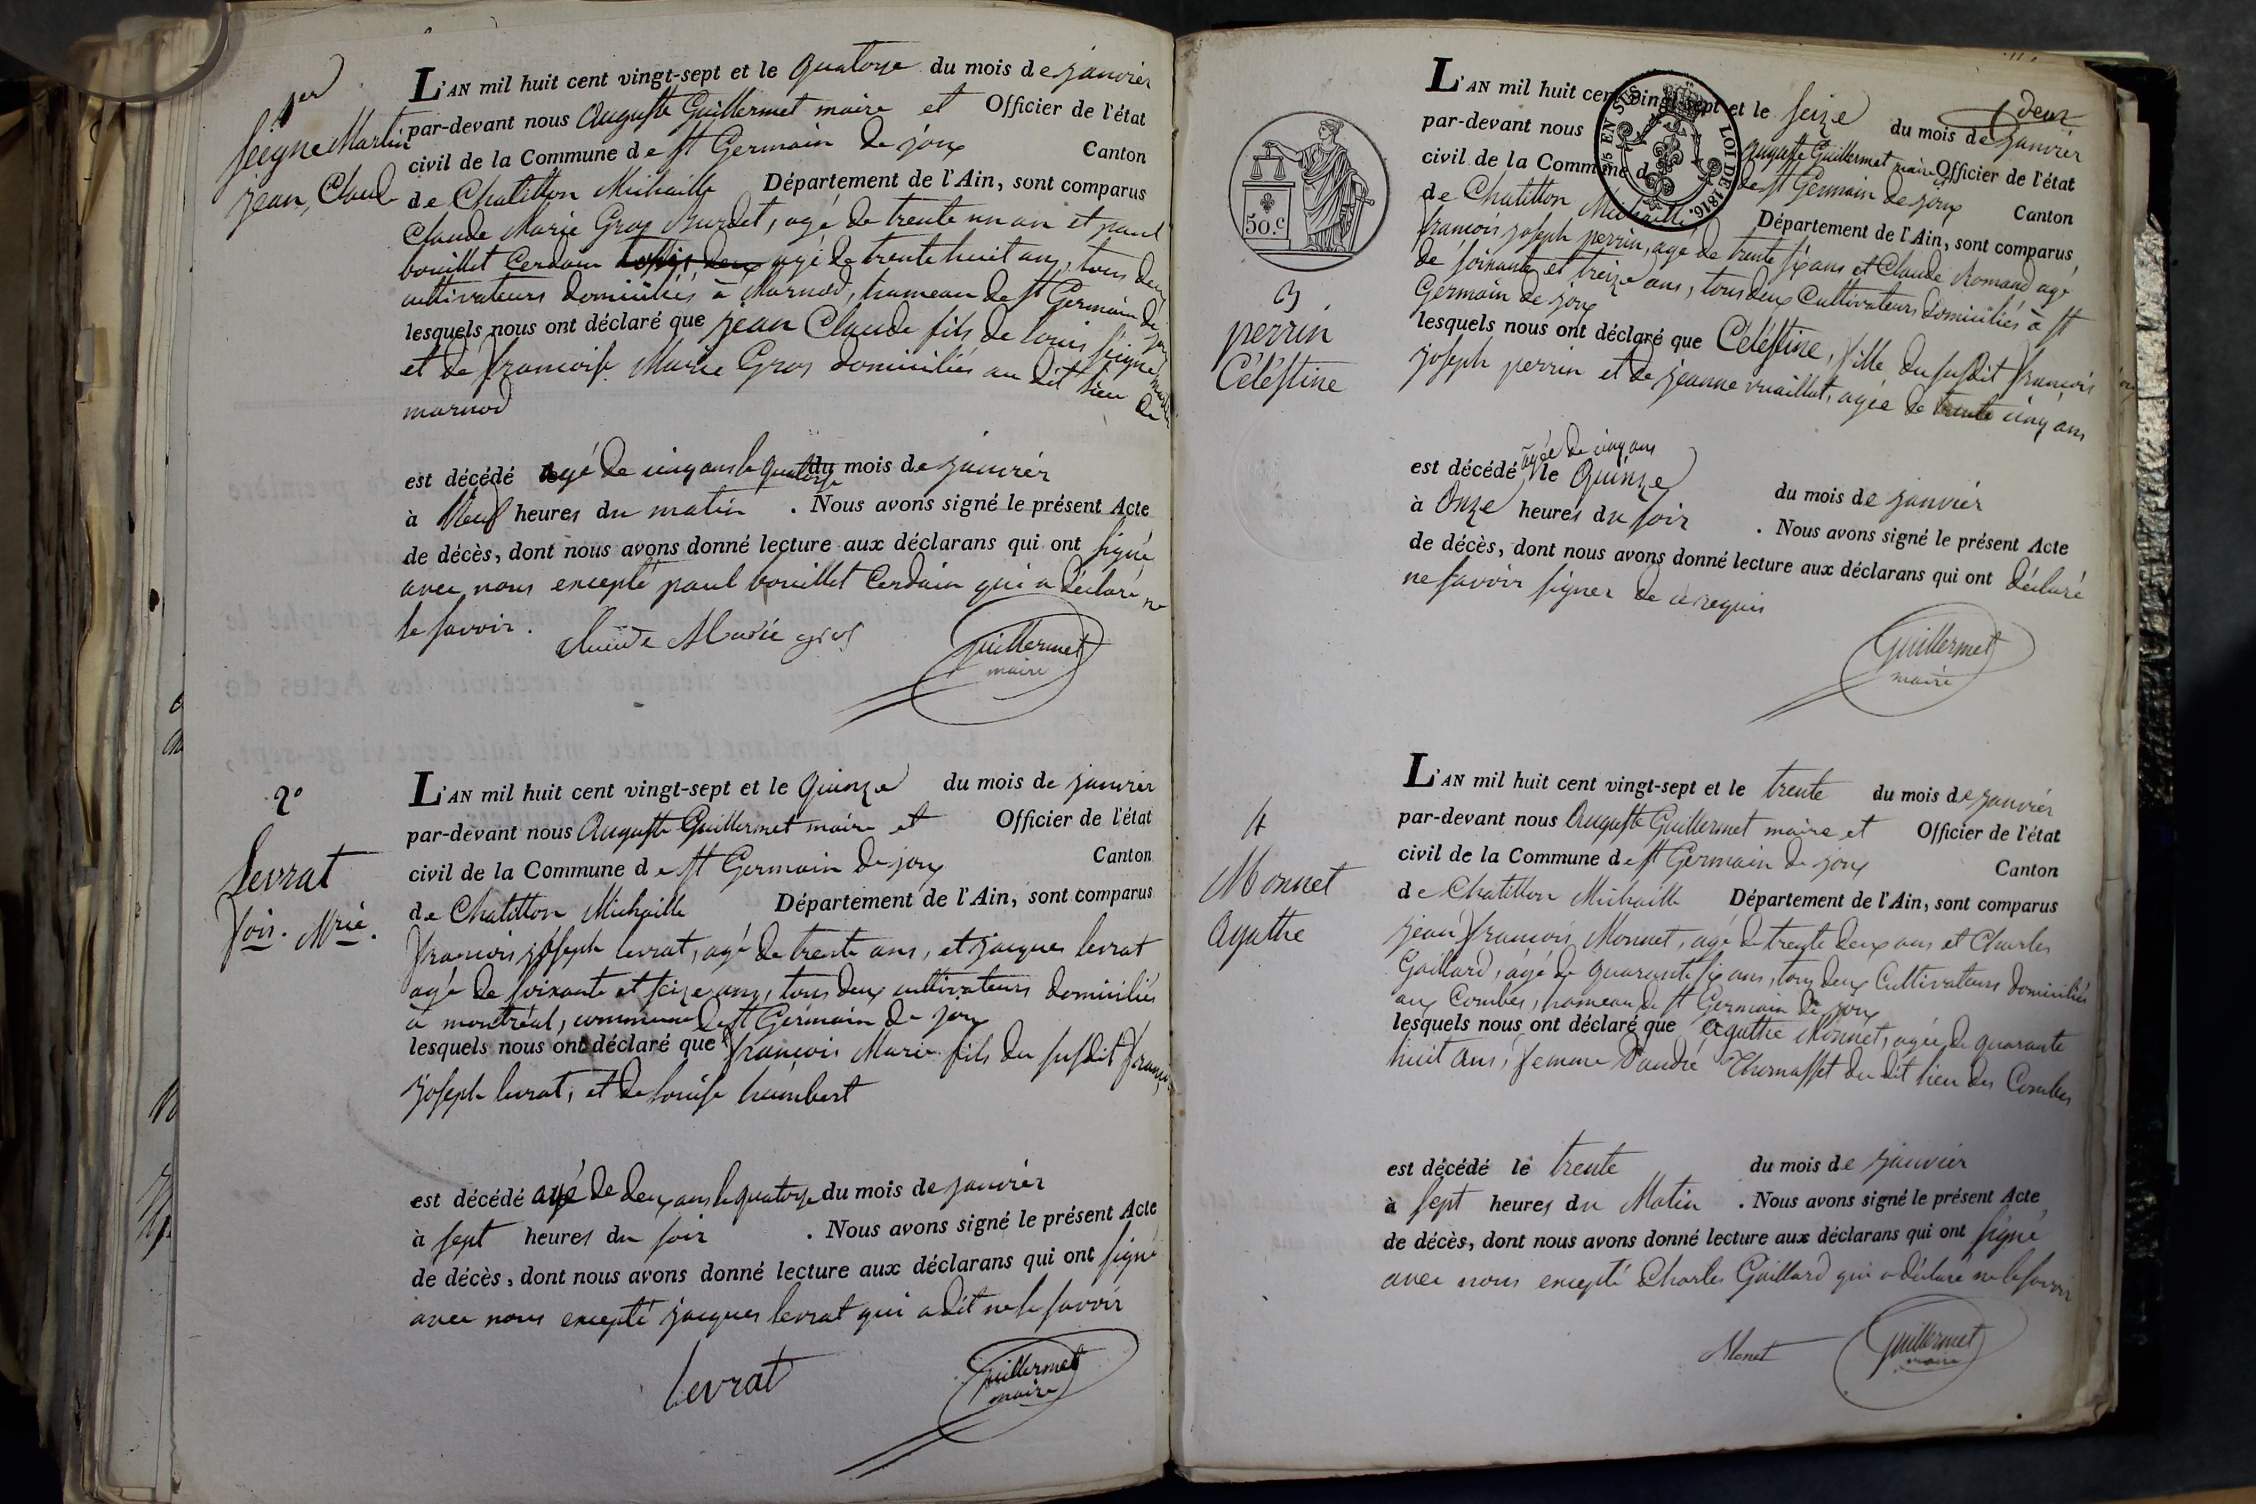 1er
Seigne Martin
jean, Claude
L'AN mil huit cent vingt-sept et le quatorze du mois de janvier
par-devant nous Auguste Guillermet maire et Officier de l'état
civil de la Commune de St Germain de joux Canton
de Chatillon Michaille Département de l'Ain, sont comparus
Claude Marie Gros Burdet, agé de trente un an et paul
bouillet Cerdain agé de trente huit ans, tous deux
cultivateurs domiciliés à Marnod, hameau de St Germain de joux
lesquels nous ont déclaré que jean Claude fils de louis Seigne Martin
et de francoise Marie Gros domiciliés au dit lieu de
marnod
est décédé agé de cinq ans le quatorze du mois de janvier
à Neuf heures du matin . Nous avons signé le présent Acte
de décès, dont nous avons donné lecture aux déclarans qui ont signé
avec nous excepté paul bouillet Cerdain qui a déclaré ne
le savoir.
Claude Marie gros
Guillermet
maire
2°
Levrat
fois. Mrie.
L'AN mil huit cent vingt-sept et le Quinze du mois de janvier
par-devant nous Auguste Guillermet maire et Officier de l'état
civil de la Commune de St Germain de joux Canton
de Chatillon Michaille Département de l'Ain, sont comparus
francois joseph levrat, agé de trente ans, et jacques levrat
agé de soixante et seize ans, tous deux cultivateurs domiciliés
à montréal, commune de St Germain de joux
lesquels nous ont déclaré que françois Marie fils du susdit françois
joseph levrat, et de louise humbert
est décédé agé de deux ans le quatorze du mois de janvier
à sept heures du soir . Nous avons signé le présent Acte
de décès, dont nous avons donné lecture aux déclarans qui ont signé
avec nous excepté jacques levrat qui a dit ne le savoir
levrat
Guillermet
maire
deux
50.C
EN SUS
LOI DE 1816.
3
perrin
Céléstine
L'AN mil huit cent vingt-sept et le seize du mois de janvier
par-devant nous Auguste Guillermet maire et Officier de l'état
civil de la Commune de St Germain de joux Canton
de Chatillon Michaille Département de l'Ain, sont comparus
francois joseph perrin, agé de trente six ans et Claude Romand agé
de soixante et treize ans, tous deux Cultivateurs domiciliés à St
Germain de joux
lesquels nous ont déclaré que Céléstine, fille du susdit françois
joseph perrin et de jeanne vuaillat, agée de trente cinq ans
agée de cinq ans
est décédé le Quinze du mois de janvier
à Onze heures du soir . Nous avons signé le présent Acte
de décès, dont nous avons donné lecture aux déclarans qui ont déclaré
ne savoir signer de ce requis
Guillermet
maire
4
Monnet
Agathe
L'AN mil huit cent vingt-sept et le trente du mois de janvier
par-devant nous Auguste Guillermet maire et Officier de l'état
civil de la Commune de St Germain de joux Canton
de Chatillon Michaille Département de l'Ain, sont comparus
jean françois Monnet, agé de trente deux ans et Charles
Gaillard, agé de quarante six ans, tous deux Cultivateurs domiciliés
aux Combes, hameau de St Germain de joux
lesquels nous ont déclaré que Agathe Monnet, agée de quarante
huit ans, femme d'andré Thomasset du dit lieu des Combes
est décédé le trente du mois de janvier
à sept heures du Matin . Nous avons signé le présent Acte
de décès, dont nous avons donné lecture aux déclarans qui ont signé
avec nous excepté Charles Gaillard qui a déclaré ne le savoir
Monet
Guillermet
maire